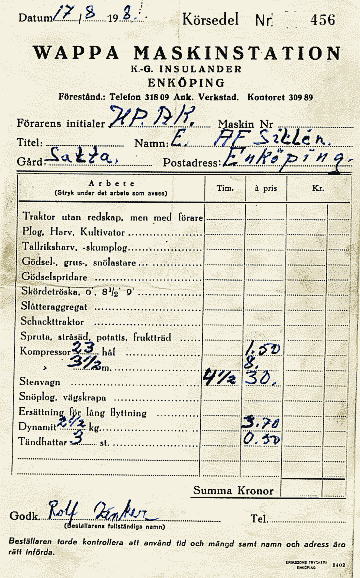 Datum 17,8 19 Körsedel Nr 456
WAPPA MASKINSTATION
K.-G. INSULANDER
ENKÖPING
Förestånd.: Telefon 318 09 Ank. Verkstad. Kontoret 309 89
Förarens initialer Maskin Nr
Titel: Namn: E. AF Sillén.
Gård Salta. Postadress: Enköping.
Arbete Tim. à pris Kr.
(Stryk under det arbete som avses)
Traktor utan redskap, men med förare
Plog, Harv, Kultivator
Tallriksharv, -skumplog
Gödsel-, grus-, snölastare
Gödselspridare
Skördetröska, 6' 8½' 9'
Slåtteraggregat
Schacktraktor
Spruta, stråsäd, potatis, fruktträd
Kompressor 23 hål 1.50
" 3½ m. 8.
Stenvagn 4½ 30.
Snöplog, vägskrapa
Ersättning för lång flyttning
Dynamit 2½ kg. 3.70
Tändhattar 3 st. 0.50
Summa Kronor
Godk. Rolf Tel.
(Beställarens fullständiga namn)
Beställaren torde kontrollera att använd tid och mängd samt namn och adress äro
rätt införda.
ENKÖPING 8402